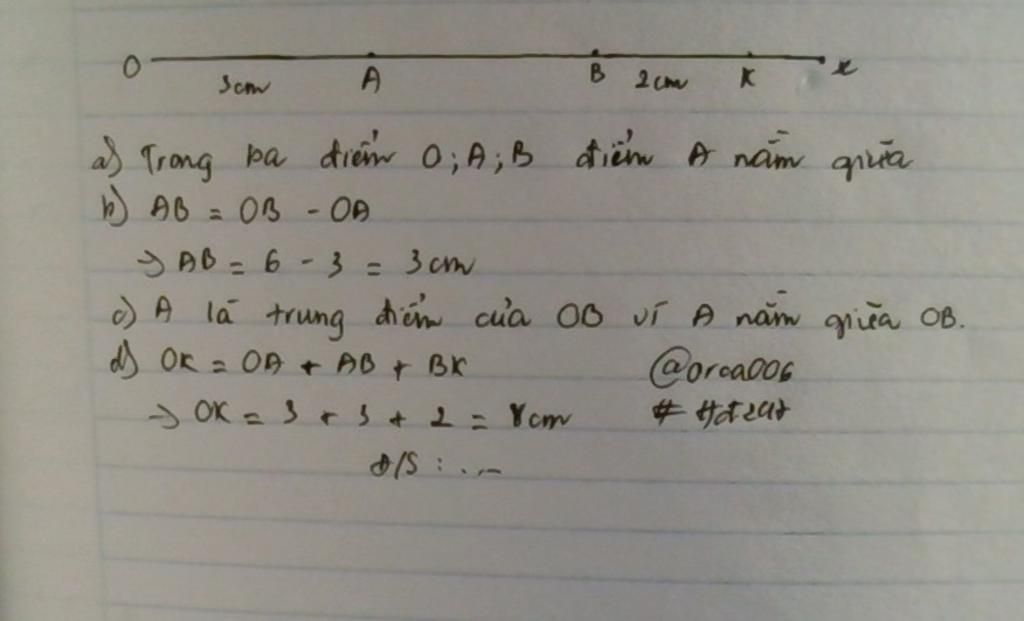 O 3cm A B 2cm K x
a) Trong ba điểm O; A; B điểm A nằm giữa
b) AB = OB - OA
→ AB = 6 - 3 = 3cm
c) A là trung điểm của OB vì A nằm giữa OB.
d) OK = OA + AB + BK
@orca006
→ OK = 3 + 3 + 2 = 8cm
#
Đ/S : ...